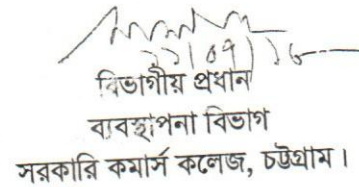 বিভাগীয় প্রধান
ব্যবস্থাপনা বিভাগ
সরকারি কমার্স কলেজ, চট্টগ্রাম।